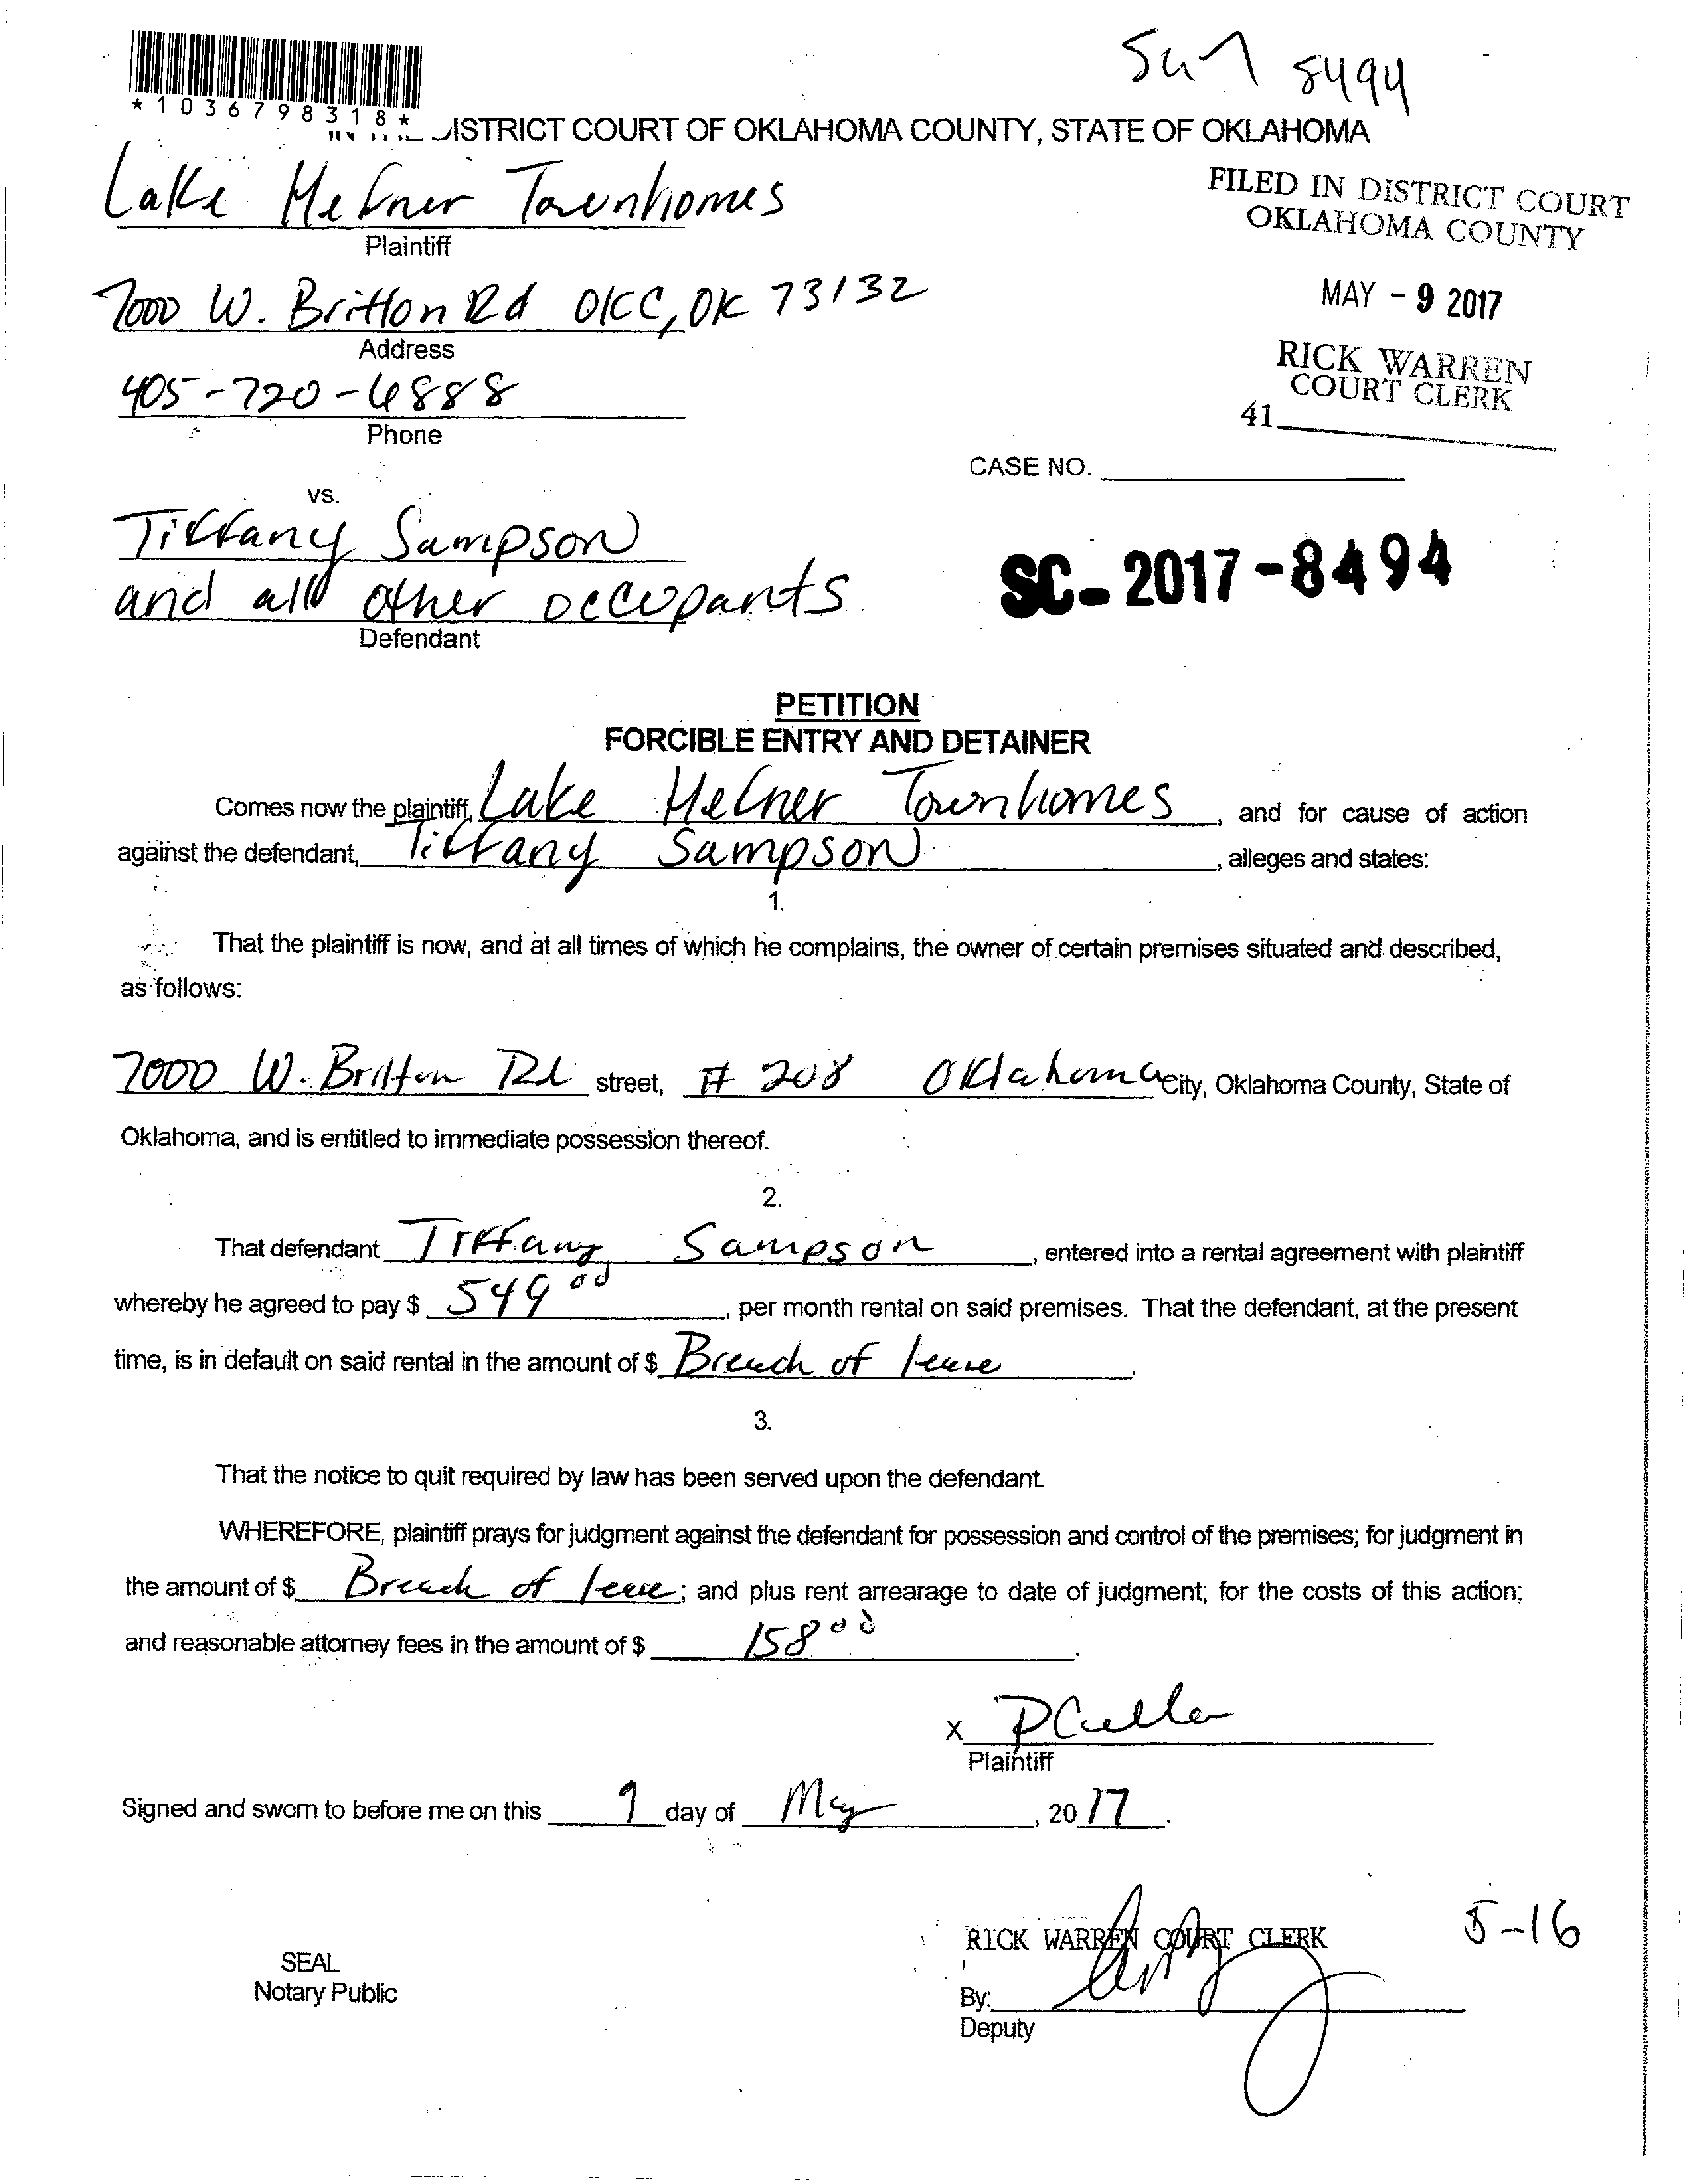 8494
*1036798318*
DISTRICT COURT OF OKLAHOMA COUNTY, STATE OF OKLAHOMA
Lake Hefner Townhomes
Plaintiff
FILED IN DISTRICT COURT
OKLAHOMA COUNTY
7000 W. Britton Rd OKC, OK 73132
Address
MAY - 9 2017
405-720-6888
Phone
RICK WARREN
COURT CLERK
41
CASE NO.
vs.
Tiffany Sampson
and all other occupants
Defendant
SC-2017-8494
PETITION
FORCIBLE ENTRY AND DETAINER
Comes now the plaintiff, Lake Hefner Townhomes, and for cause of action
against the defendant, Tiffany Sampson, alleges and states:
1.
That the plaintiff is now, and at all times of which he complains, the owner of certain premises situated and described,
as follows:
7000 W. Britton Rd street, # 208 Oklahoma City, Oklahoma County, State of
Oklahoma, and is entitled to immediate possession thereof.
2.
That defendant Tiffany Sampson, entered into a rental agreement with plaintiff
whereby he agreed to pay $ 549 00, per month rental on said premises. That the defendant, at the present
time, is in default on said rental in the amount of $ Breach of lease.
3.
That the notice to quit required by law has been served upon the defendant.
WHEREFORE, plaintiff prays for judgment against the defendant for possession and control of the premises; for judgment in
the amount of $ Breach of lease; and plus rent arrearage to date of judgment; for the costs of this action;
and reasonable attorney fees in the amount of $ 158 00.
X
Plaintiff
Signed and sworn to before me on this 9 day of May, 20 17.
RICK WARREN COURT CLERK
5-16
SEAL
Notary Public
By:
Deputy